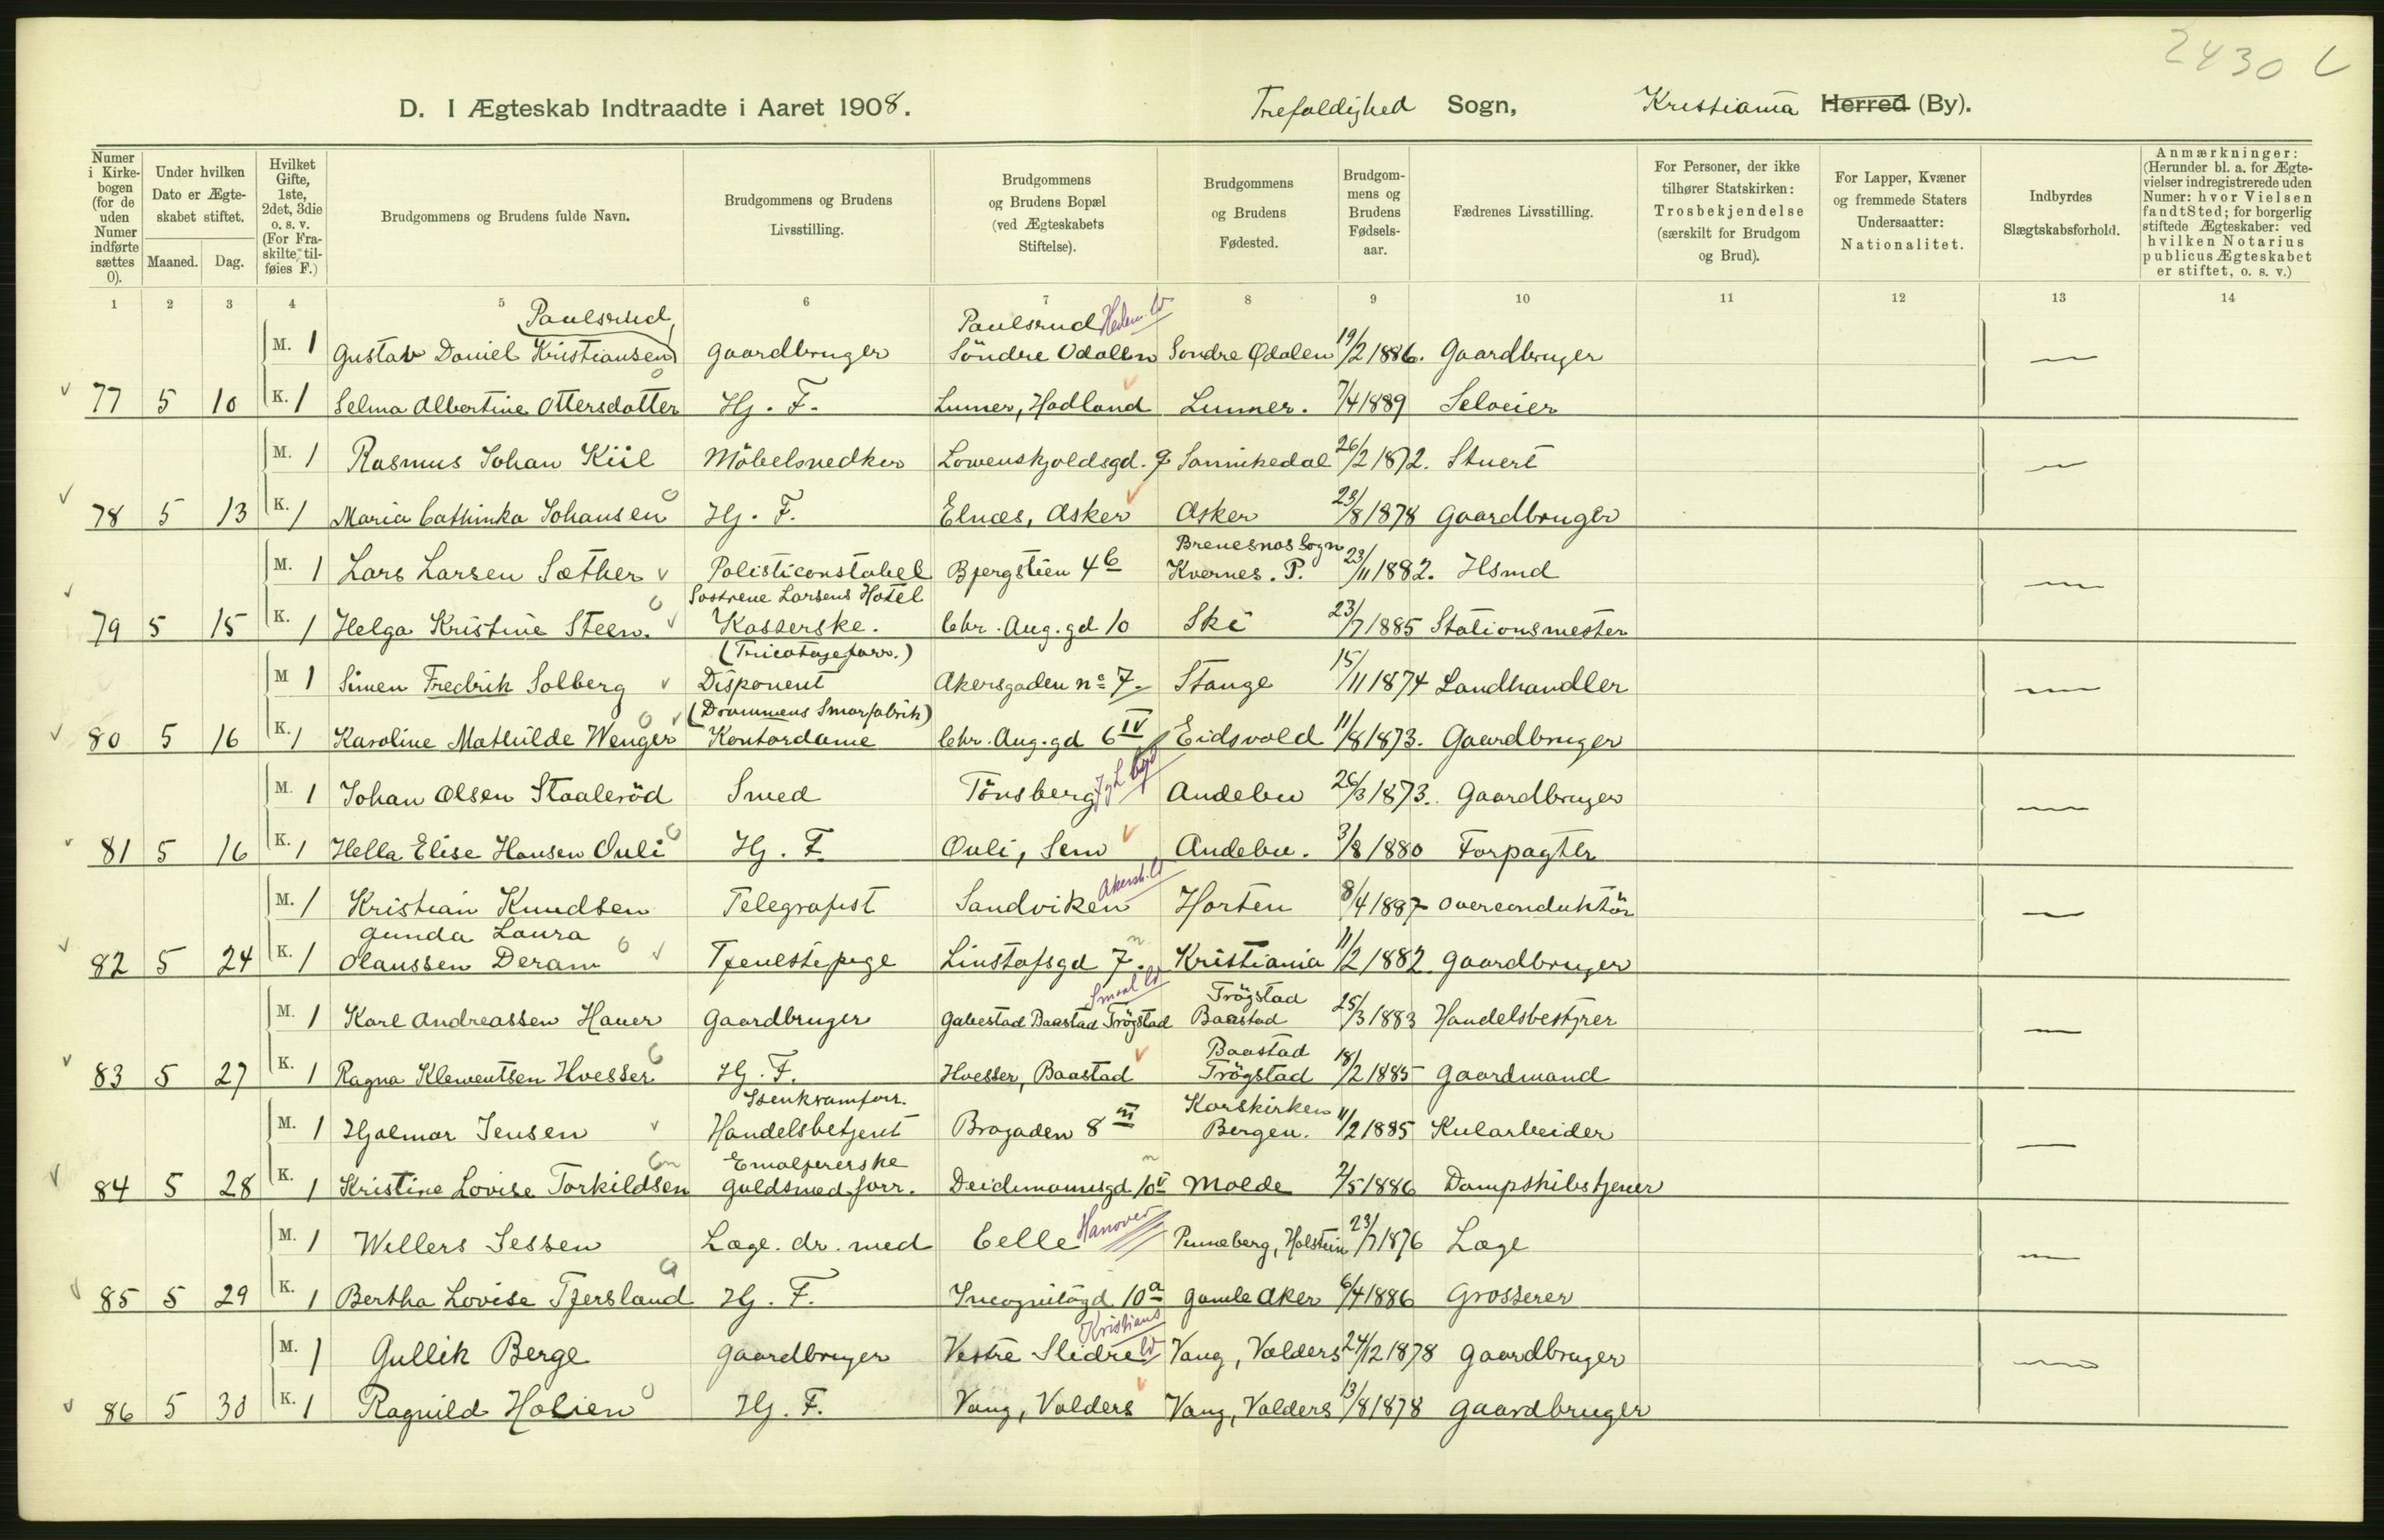 2430
D. I Ægteskab Indtraadte i Aaret 1908. Trefoldighed Sogn, Kristiania Herred (By).
Numer i Kirkebogen (for de uden Numer indførte sættes 0). Under hvilken Dato er Ægteskabet stiftet. Maaned. Dag. Hvilket Gifte, 1ste, 2det, 3die o. s. v. (For Fraskilte tilføies F.) Brudgommens og Brudens fulde Navn. Brudgommens og Brudens Livsstilling. Brudgommens og Brudens Bopæl (ved Ægteskabets Stiftelse). Brudgommens og Brudens Fødested. Brudgommens og Brudens Fødselsaar. Fædrenes Livsstilling. For Personer, der ikke tilhører Statskirken: Trosbekjendelse (særskilt for Brudgom og Brud). For Lapper, Kvæner og fremmede Staters Undersaatter: Nationalitet. Indbyrdes Slægtskabsforhold. Anmærkninger: (Herunder bl. a. for Ægtevielser indregistrerede uden Numer: hvor Vielsen fandt Sted; for borgerlig stiftede Ægteskaber: ved hvilken Notarius publicus Ægteskabet er stiftet, o. s. v.)
1 2 3 4 5 6 7 8 9 10 11 12 13 14
Paulsrud Paulsrud Hedem.
M. 1 Gustav Daniel Kristiansen Gaardbruger Söndre Odalen Sondre Odalen 19/2 1886. Gaardbruger —
77 5 10 K. 1 Selma Albertine Ottersdatter Hj. F. Lunner, Hadland Lunner. 7/4 1889 Selveier
M. 1 Rasmus Johan Kiil Möbelsnedker Lowenskjoldsgd. 9 Sannikedal 26/2 1872. Stuert —
78 5 13 K. 1 Maria Cathinka Johansen Hj. F. Elnæs, Asker Asker 23/8 1878 Gaardbruger
Bremesnes Sogn
M. 1 Lars Larsen Sæther Politiconstabel Bjergstien 4b Kvernes. P. 23/11 1882. Hsmd —
Sostrene Larsens Hotel
79 5 15 K. 1 Helga Kristine Steen. Kasserske. Chr. Aug. gd 10 Ski 23/7 1885 Stationsmester
(Tricotageforr.)
M 1 Simen Fredrik Solberg Disponent Akersgaden no 7. Stange 15/11 1874 Landhandler —
(Drammens Smørfabrik)
80 5 16 K. 1 Karoline Mathilde Wenger Kontordame Chr. Aug. gd 6 IV Eidsvold 11/8 1873. Gaardbruger
M. 1 Johan Olsen Staaleröd Smed Tönsberg Andebu 26/3 1873. Gaardbruger —
81 5 16 K. 1 Hella Elise Hansen Ouli Hj. F. Ouli, Sem Andebu. 3/8 1880 Forpagter
Akersh.
M. 1 Kristian Knudsen Telegrafist Sandviken Horten 8/4 1887 Overconduktör —
Gunda Laura
82 5 24 K. 1 Olaussen Deram Tjenestepige Linstofsgd 7. Kristiania 11/2 1882 Gaardbruger
Smaal Trögstad
M. 1 Karl Andreassen Hauer Gaardbruger Gabestad Baastad Trögstad Baastad 25/3 1883 Handelsbestyrer —
Baastad
83 5 27 K. 1 Ragna Klementsen Hvesser Hj. F. Hvesser, Baastad Trögstad 18/2 1885 Gaardmand
Isenkramforr. Korskirken
M. 1 Hjalmar Jensen Handelsbetjent Brogaden 8 III Bergen. 11/2 1885 Kularbeider —
Emaljererske
84 5 28 K. 1 Kristine Lovise Torkildsen Guldsmedforr. Deichmannsgd 10 V Molde 2/5 1886 Dampskibstjener
M. 1 Willers Jessen Læge. dr. med Celle Hanover Pinneberg, Holstein 23/7 1876 Læge —
85 5 29 K. 1 Bertha Lovise Tjersland Hj. F. Incognitogd 10a Gamle Aker 6/4 1886 Grosserer
Kristians
M. 1 Gullik Berge Gaardbruger Vestre Slidre Vang, Valders 24/12 1878 Gaardbruger —
86 5 30 K. 1 Ragnild Holien Hj. F. Vang, Valders Vang, Valders 13/8 1878 Gaardbruger